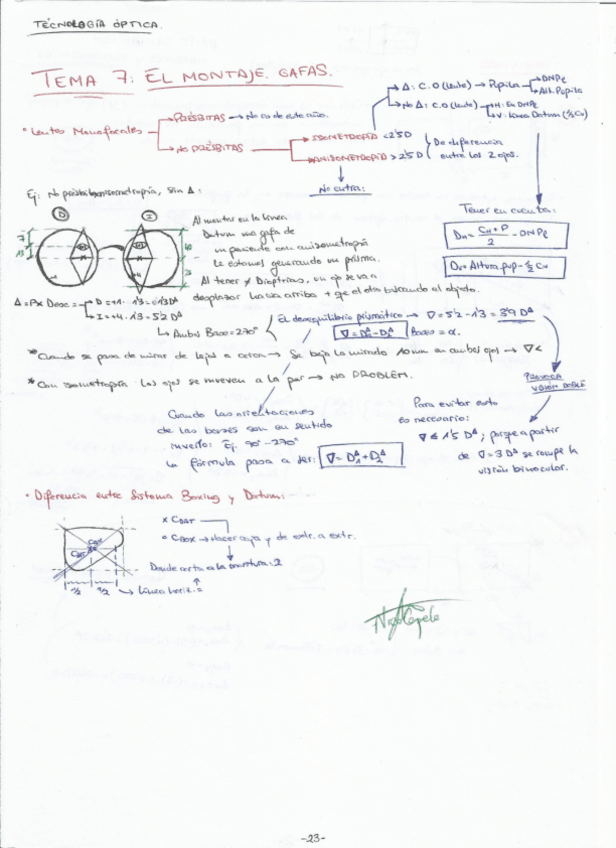 TECNOLOGÍA ÓPTICA.
TEMA 7: EL MONTAJE. GAFAS.
• Lentes Monofocales
PRÉSBITAS → No es de este año.
NO PRÉSBITAS
ISOMETROPÍA < 2'5D
ANISOMETROPÍA > 2'5D
De diferencia
entre los 2 ojos.
No entra:
Δ: C.O (lente) → Pupila
DNPL
Alt. Pupila
No Δ: C.O (lente)
H: En DNPL
V: Línea Datum (½CH)
Tener en cuenta:
DH = CH + P / 2 - DNPL
DV = Altura pup - ½ CH
Ej: No présbita anisometropía, sin Δ:
D
I
Al montar en la línea
Datum una gafa de
un paciente con anisometropía
le estamos generando un prisma.
Al tener ≠ Dioptrías, un ojo se va a
desplazar hacia arriba + qe el otro buscando al objeto.
Δ = P x Desc =
D = +1 · 1'3 =
I = +4 · 1'3 = 5'2 DΔ
↳ Ambos Base = 270°
El desequilibrio prismático → ∇ = 5'2 - 1'3 = 3'9 DΔ
∇ = D1Δ - D2Δ
Bases = α.
* Cuando se pasa de mirar de lejos a cerca → Se baja la mirada 10 mm en ambos ojos → ∇ <
* Con isometropía los ojos se mueven a la par → NO PROBLEM.
PROVOCA
VISIÓN DOBLE
Cuando las orientaciones
de las bases son en sentido
inverso: Ej. 90° - 270°
la fórmula pasa a ser: ∇ = D1Δ + D2Δ
Para evitar esto
es necesario:
∇ ≤ 1'5 DΔ; porqe a partir
de ∇ = 3 DΔ se rompe la
visión binocular.
• Diferencia entre Sistema Boxing y Datum:
x CDAT
o CBOX → Hacer caja y de extr. a extr.
Donde corta a la montura: 2
½ ½ → Línea horiz. =
-23-